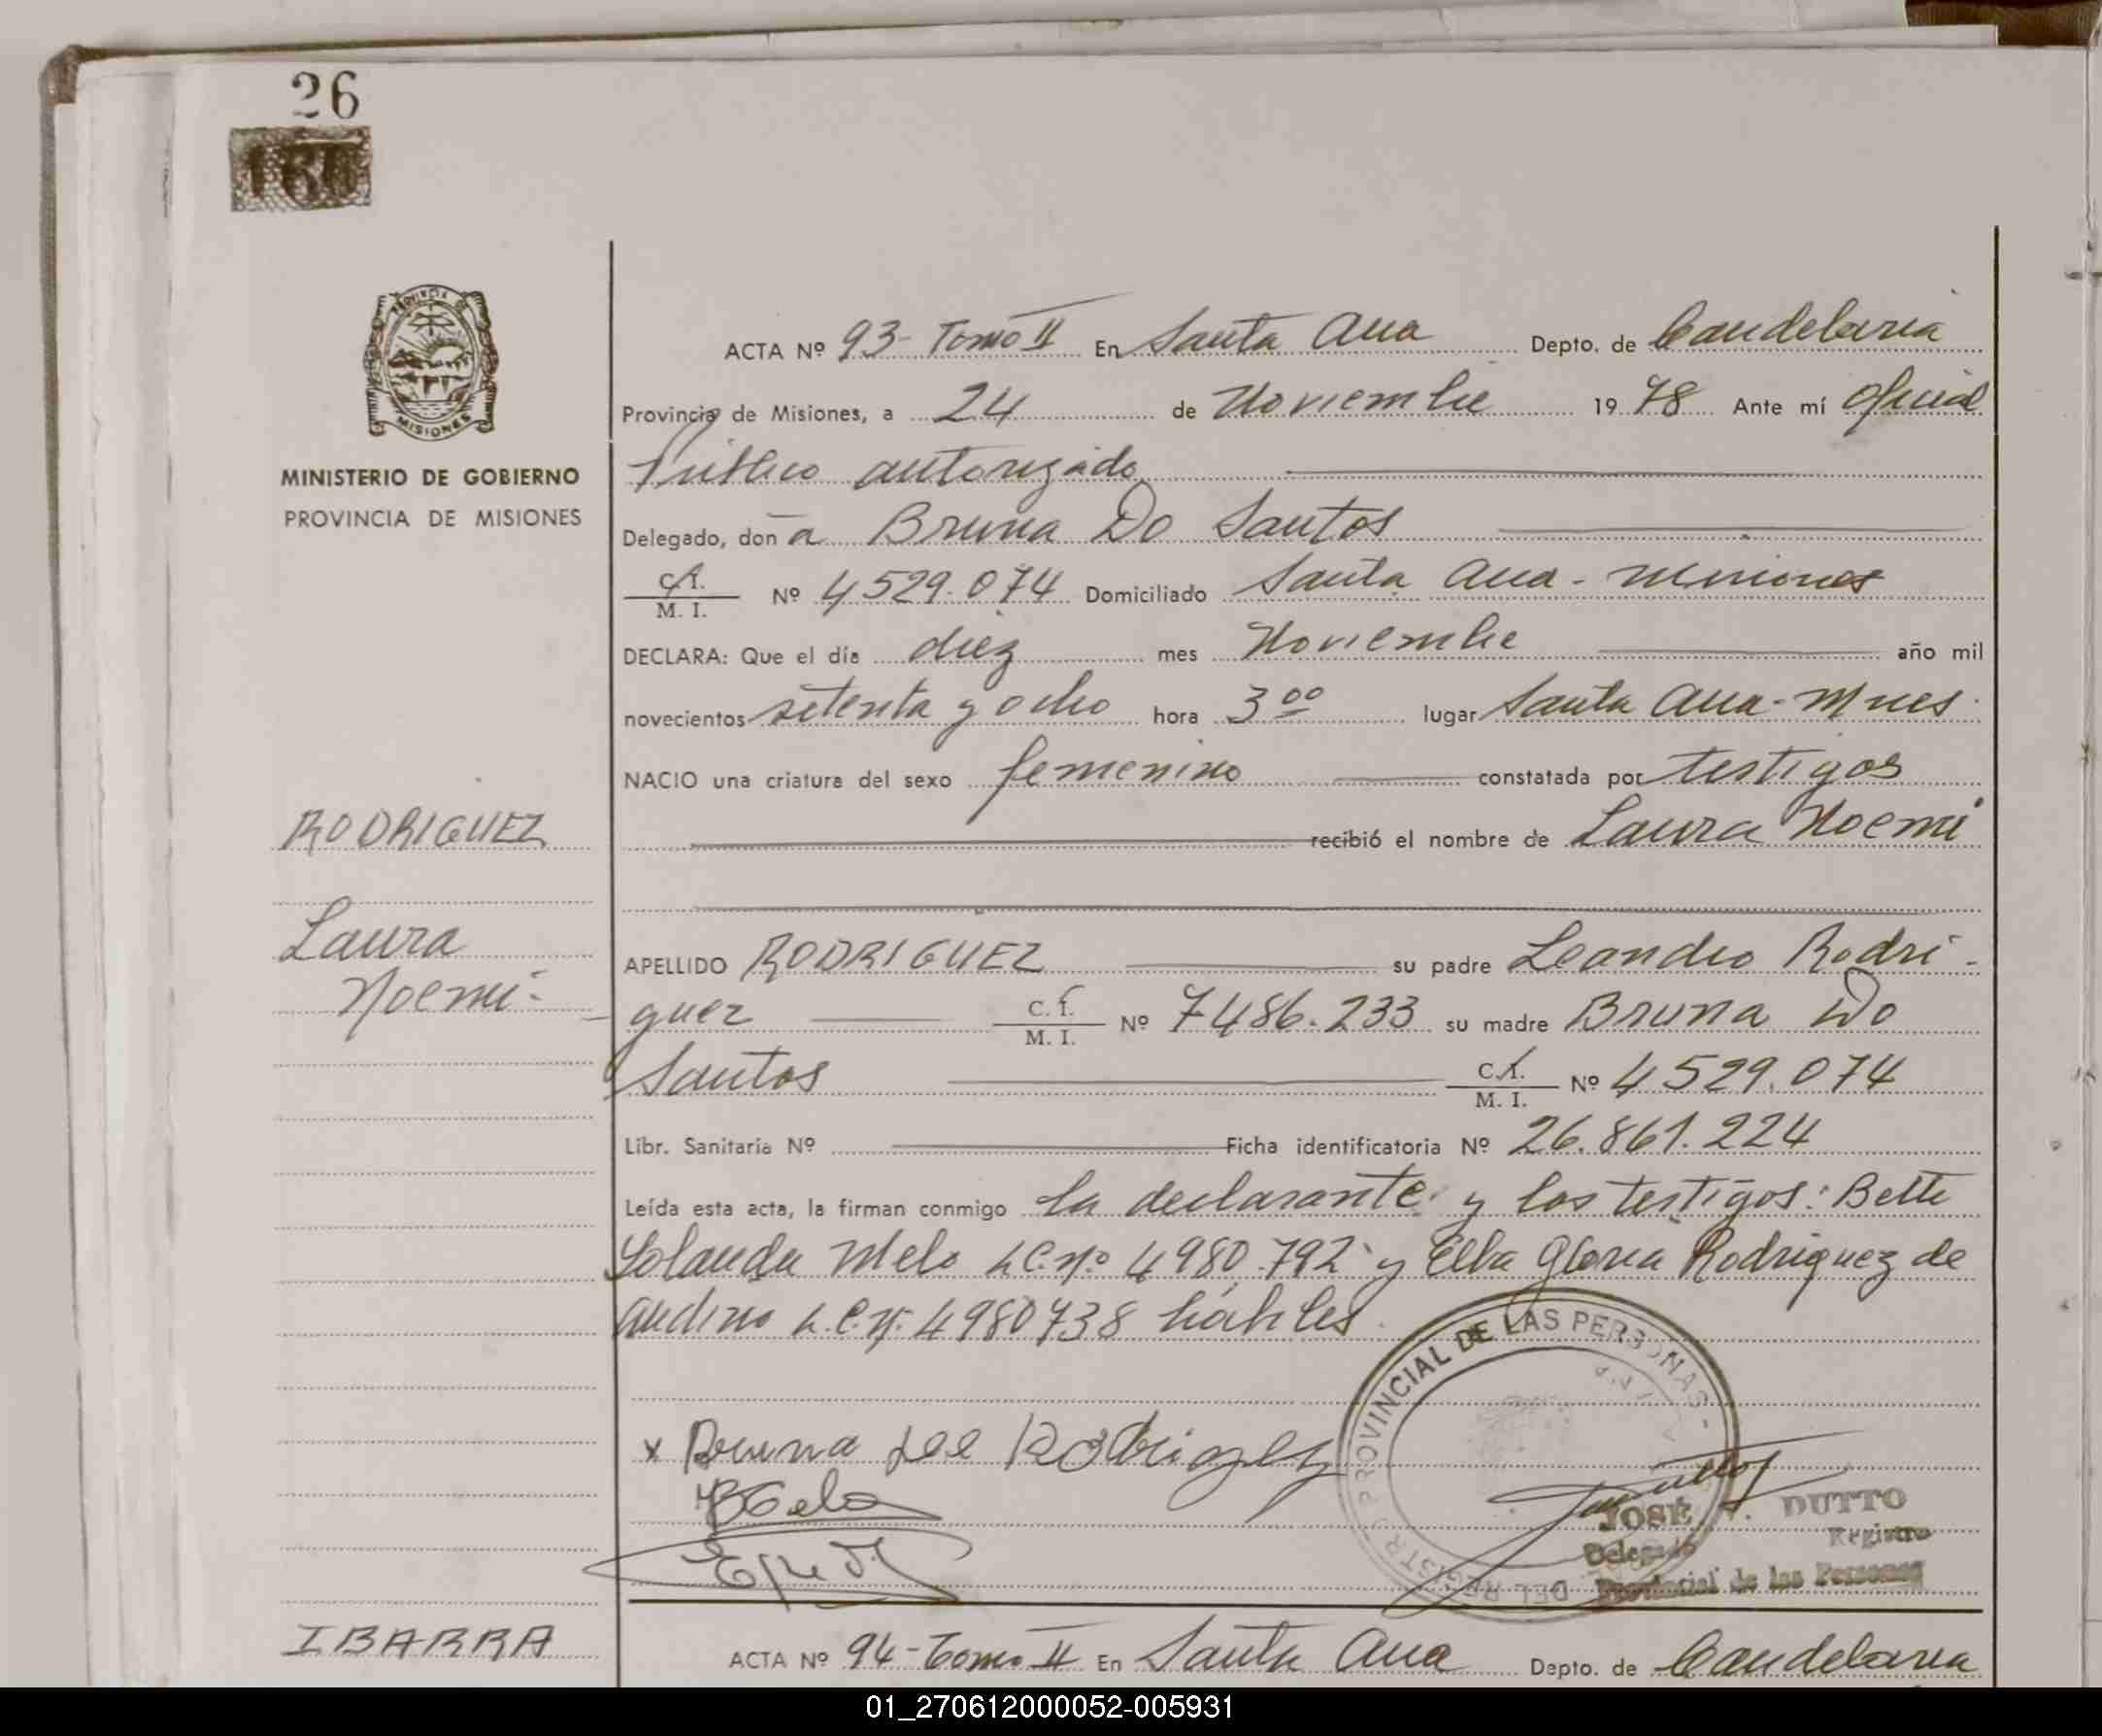 26
PROVINCIA DE
MISIONES
MINISTERIO DE GOBIERNO
PROVINCIA DE MISIONES
ACTA Nº 93- Tomo II En Santa Ana Depto. de Candelaria
Provincia de Misiones, a 24 de Noviembre 19 78 Ante mí Oficial
Público autorizado
Delegado, don a Bruna Do Santos
C.I. / M. I. Nº 4529.074 Domiciliado Santa Ana - Misiones
DECLARA: Que el día diez mes Noviembre año mil
novecientos setenta y ocho hora 3 00 lugar Santa Ana - Mnes.
NACIO una criatura del sexo femenino constatada por testigos
RODRIGUEZ
recibió el nombre de Laura Noemi
Laura
Noemi-
APELLIDO RODRIGUEZ su padre Leandro Rodri-
guez C. I. / M. I. Nº 7486.233 su madre Bruna Do
Santos C.I. / M. I. Nº 4529.074
Libr. Sanitaria Nº Ficha identificatoria Nº 26.861.224
Leída esta acta, la firman conmigo la declarante y los testigos: Bette
Yolanda Melo L.C.Nº 4980.792 y Elba Gloria Rodriguez de
Andino L.C.Nº 4980738 hábiles.
x Bruna Rodriguez
REGISTRO PROVINCIAL DE LAS PERSONAS
JOSE DUTTO
Delegado Registro
Provincial de las Personas
IBARRA
ACTA Nº 94- Tomo II En Santa Ana Depto. de Candelaria
01_270612000052-005931